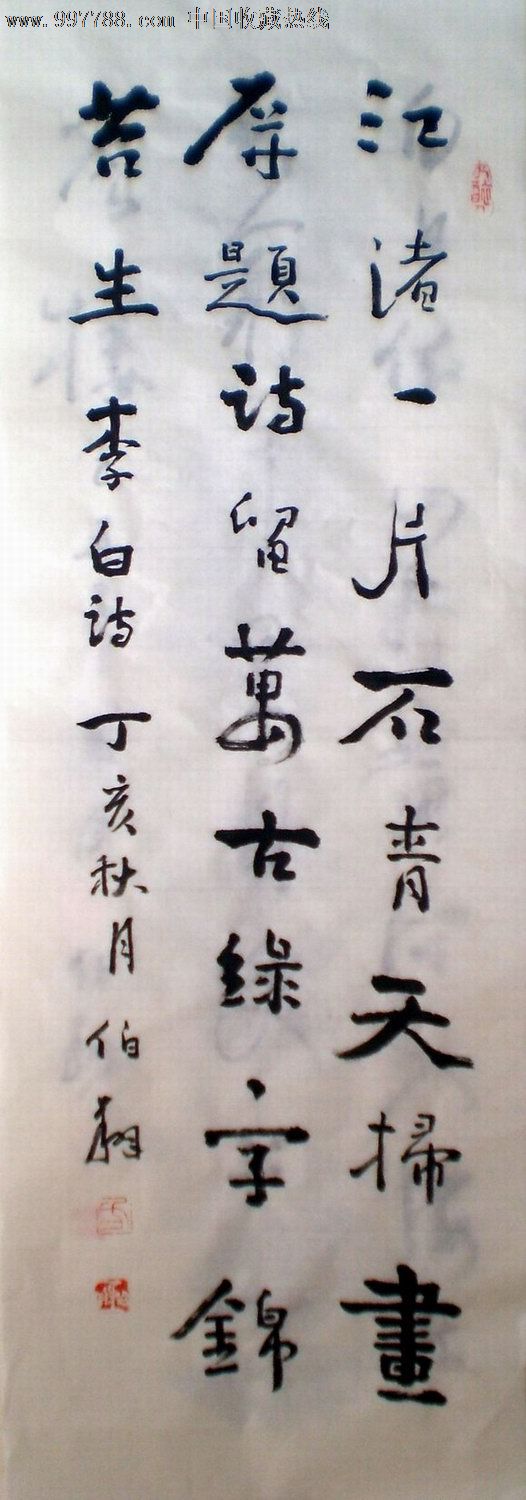 www.997788.com 中国收藏热线
江渚一片石青天掃畫
屏題诗留萬古綠字錦
苔生 李白诗 丁亥秋月 伯